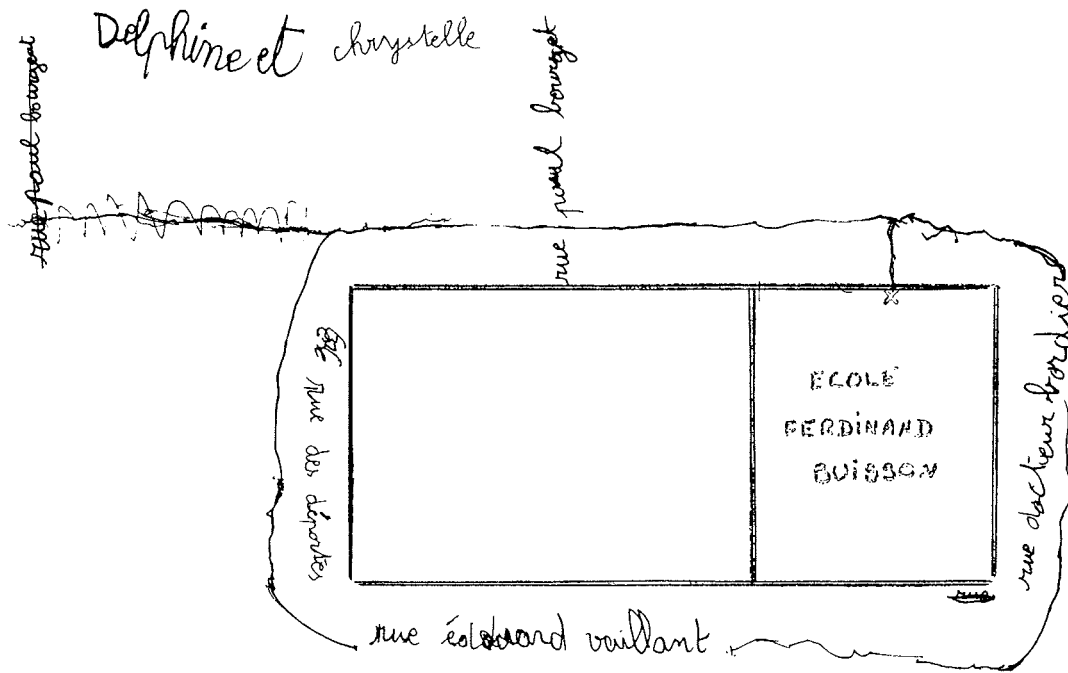 Delphine et chrystelle
rue paul bourget
rue paul bourget
rue des déportés
ECOLE
FERDINAND
BUISSON
rue docteur bordier
rue
rue édouard vaillant